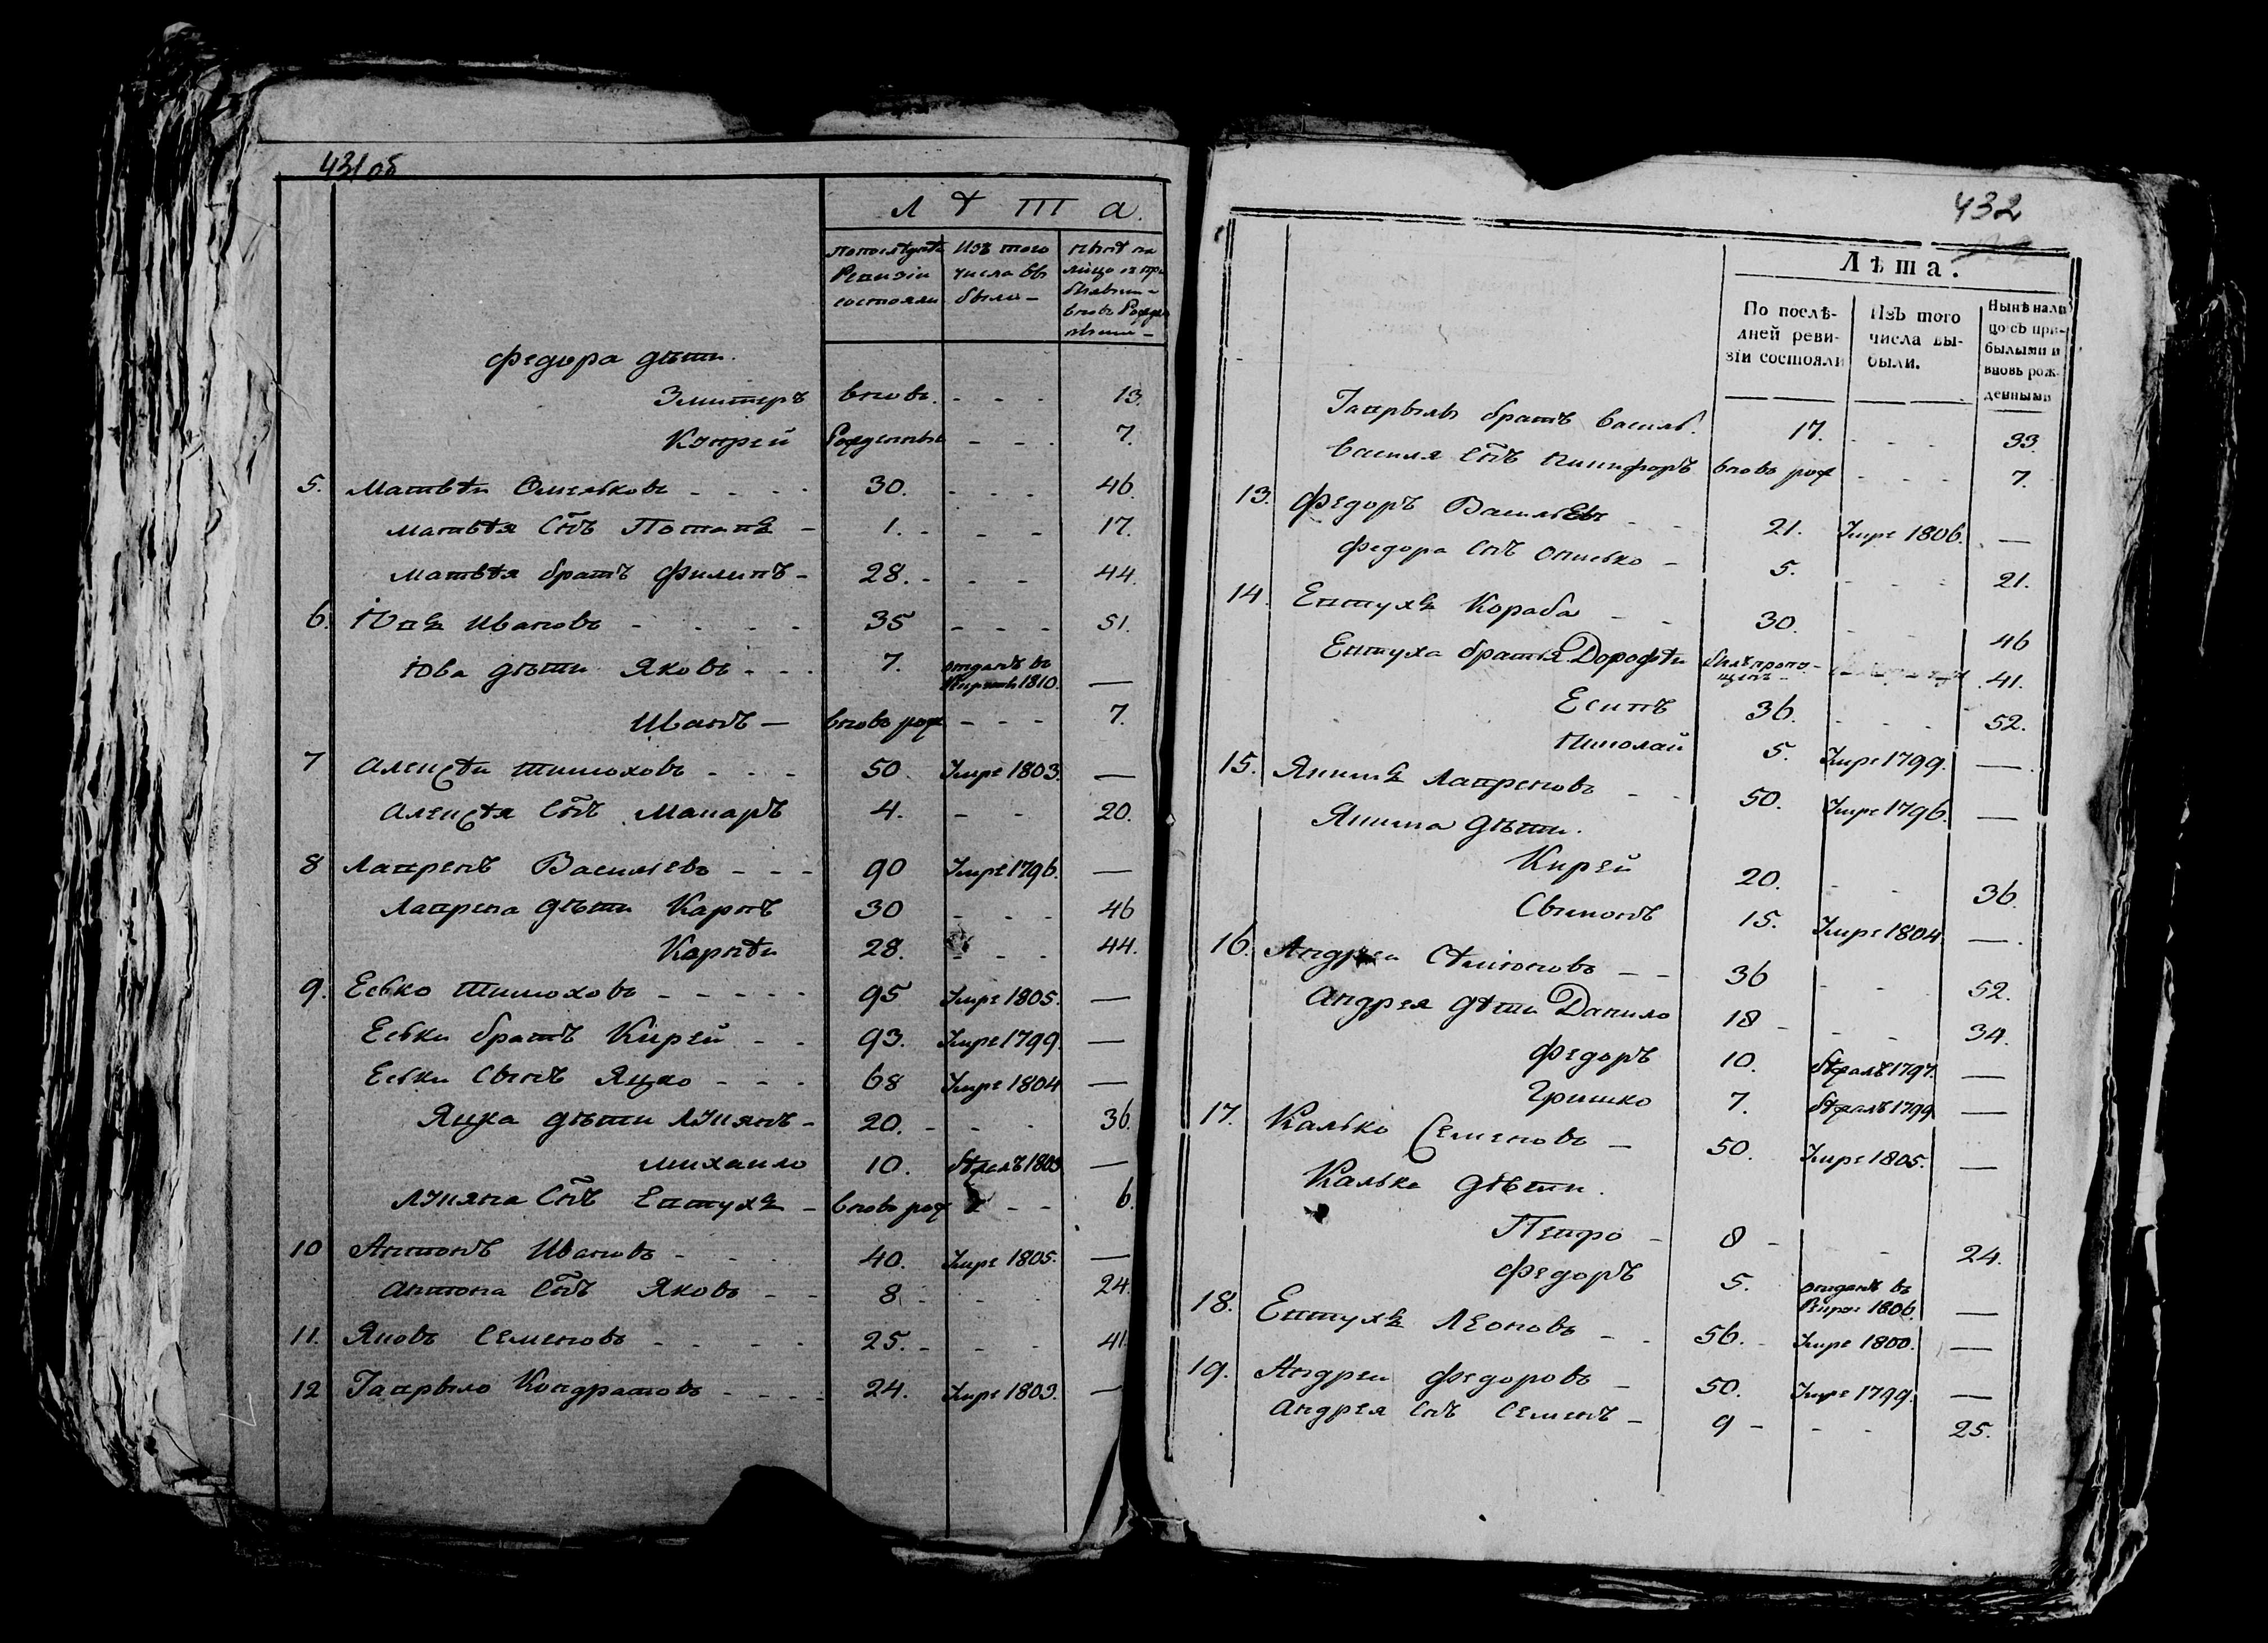 431 об
Л Ѣ Т А.
По последней Ревизіи состояли
Изъ того числа вы были
Нынѣ на лицо съ при былыми вновь Рожденными
Федора дѣти.
Змитеръ вновь - - - 13.
Кондрей Рожденные - - - 7.
5. Матвѣй Омельковъ - - - - 30. - - - 46.
Матвѣя Снъ Потапъ - 1. - - - 17.
Матвѣя братъ Филипъ - 28. - - - 44.
6. Юпъ Ивановъ - - - - 35 - - - 51.
Юва дѣти Яковъ - - - 7. отданъ въ Рекруты 1810. —
Иванъ — вновь рож - - - 7.
7 Алексѣй Тимоховъ - - - 50. Умре 1803. —
Алексѣя Снъ Макаръ 4. - - 20.
8 Лавренъ Васильевъ - - - 90 Умре 1796. —
Лаврена дѣти Карпъ 30 - - - 46
Карнѣй 28. - - - 44.
9. Еско Тимоховъ - - - - - 95 Умре 1805. —
Еськи братъ Кирей - - 93. Умре 1799. —
Еськи Сынъ Яцко - - - 68 Умре 1804 —
Яцка дѣти Лукянъ - 20. - - - 36.
Михайло 10. бѣжалъ 1803 —
Лукяна Снъ Евтухъ - вновь рож - - 6.
10 Антонъ Ивановъ - - - 40. Умре 1805. —
Антона Снъ Яковъ - - 8. - - - 24.
11. Яковъ Семеновъ - - - - 25. - - - 41.
12 Гаврыло Кондратовъ - - - - 24. Умре 1803. —
432
Лѣта.
По послѣ-дней реви-зіи состояли
Изъ того числа вы-были.
Нынѣ на ли цо съ при-былыми и вновь рож-денными
Гаврылы братъ Василь. 17. - - - 33.
Василя Снъ Никифоръ вновь рож - - - 7.
13. Федоръ Васильевъ - - 21. Умре 1806. —
Федора Снъ Омелько - 5. - - - 21.
14. Евтухъ Кораба - - 30. - - 46
Евтуха братья Дорофѣй былъ пропущенъ - 41.
Есипъ 36. - - - 52.
Николай 5. Умре 1799. —
15. Якимъ Лавреновъ - - 50. Умре 1796. —
Якима дѣти.
Кирей 20. - - 36.
Сымонъ 15. Умре 1804 —
16. Андрей Сѣмионовъ - - 36 - - 52.
Андрея дѣти Данило 18 - - - 34.
Федоръ 10. бѣжалъ 1797. —
Гришко 7. бѣжалъ 1799 —
17. Калько Семеновъ - 50. Умре 1805. —
Калька дѣти.
Петро - 8 - - 24.
Федоръ 5. отданъ въ Рекрут 1806. —
18. Евтухъ Леоновъ - - 56. - Умре 1800. —
19. Андрей Федоровъ - 50. Умре 1799. —
Андрея Снъ Семенъ - 9 - - - 25.